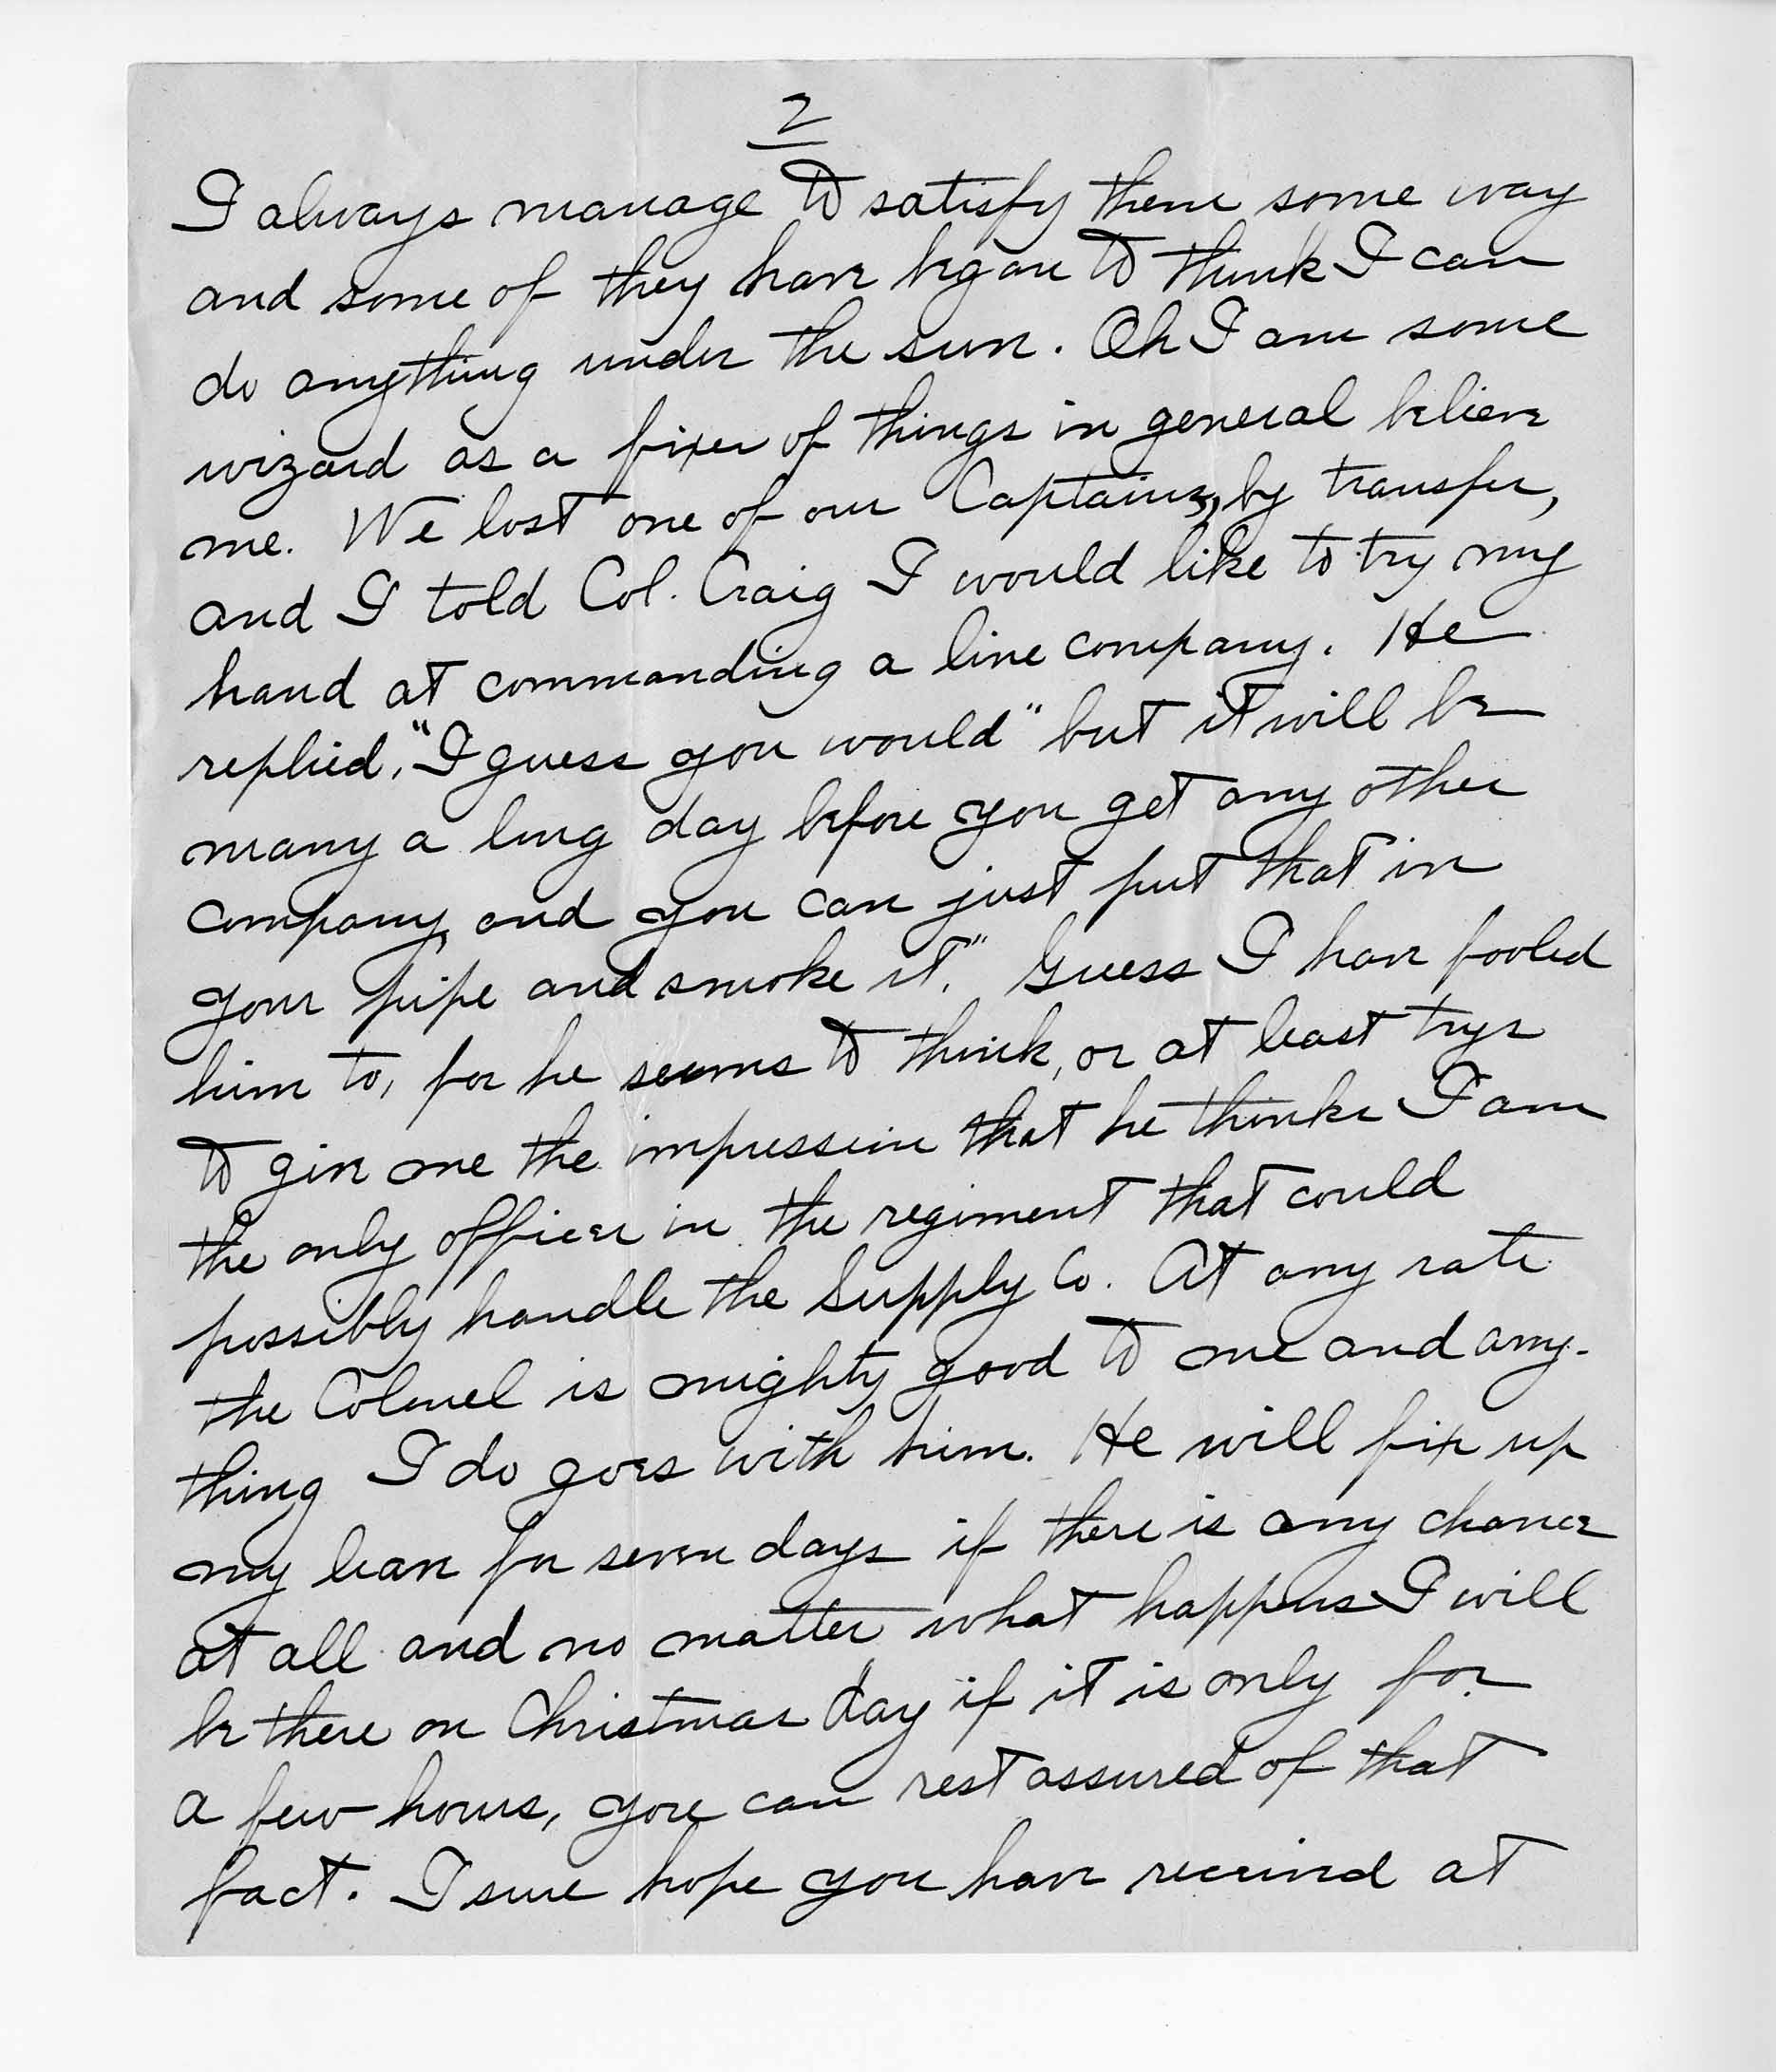 2
I always manage to satisfy them some way
and some of they have began to think I can
do anything under the sun. Oh I am some
wizard as a fixer of things in general believe
me. We lost one of our Captains, by transfer,
and I told Col. Craig I would like to try my
hand at commanding a line company. He
replied, "I guess you would" but it will be
many a long day before you get any other
company, and you can just put that in
your pipe and smoke it." Guess I have fooled
him to, for he seems to think, or at least trys
to give me the impression that he thinks I am
the only officer in the regiment that could
possibly handle the Supply Co. At any rate
the Colonel is mighty good to me and any-
thing I do goes with him. He will fix up
my leave for seven days if there is any chance
at all and no matter what happens I will
be there on Christmas day if it is only for
a few hours, you can rest assured of that
fact. I sure hope you have received at